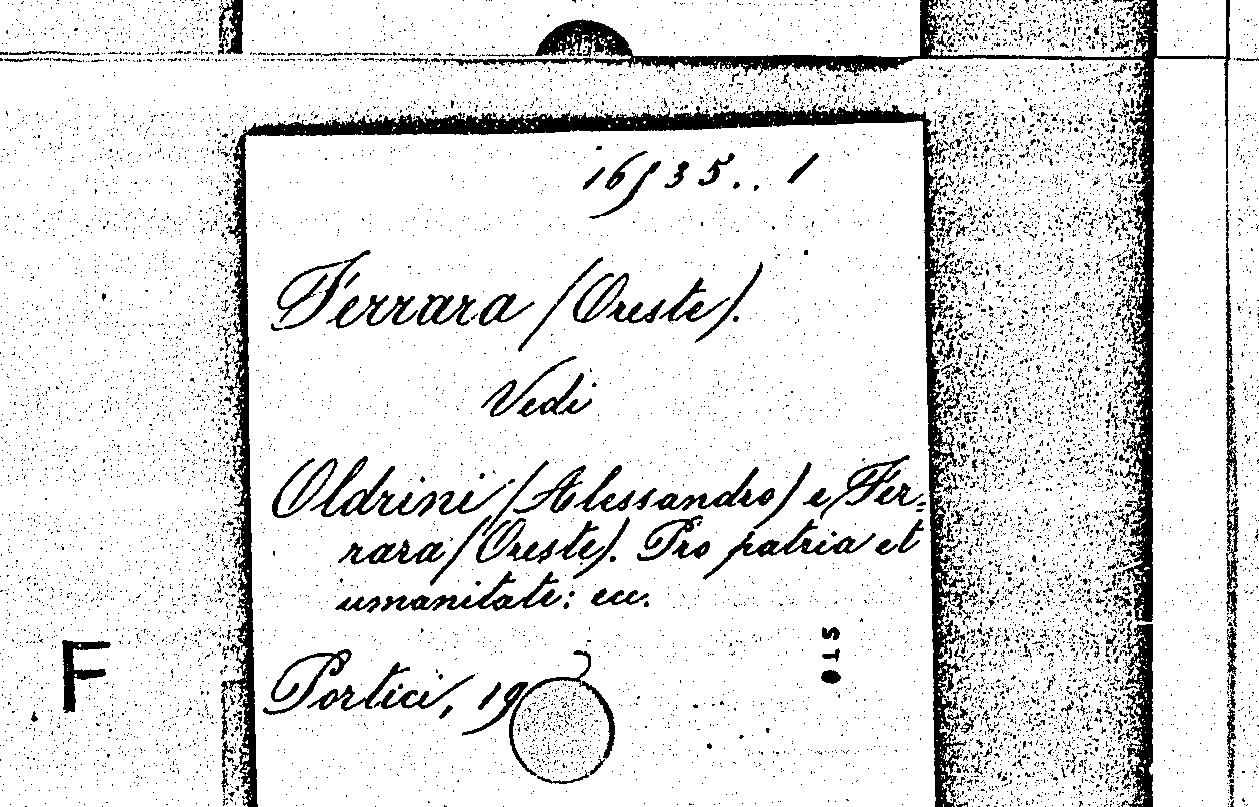 16535.. 1
Ferrara (Oreste).
Vedi
Oldrini (Alessandro) e Fer=
rara (Oreste). Pro patria et
umanitate: ecc.
Portici, 19
015
F